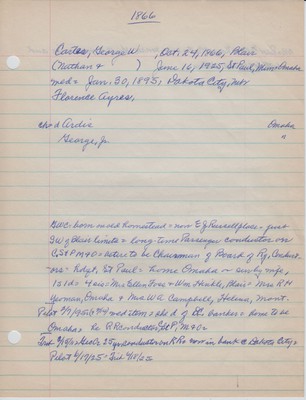 1866
Carter, George W , Oct. 24, 1866, Blair
(Nathan & ) June 16, 1925, St Paul, Minn = Omaha
med = Jan. 30, 1895, Dakota City, Nebr
Florence Ayres,
ch = d Ardis Omaha
George, Jr. "
GWC = born on old homestead = now E J Russell place = just
SW of Blair limits = long-time Passenger conductor on
CStPM&O = active to be Chairman of Board of Ry. Conduct.
ors = hdqt. St Paul = home Omaha = surv by wife,
1s 1d = 4 sis = Mrs Ellen Foss = Wm Kuhle, Blair = Mrs R H
Yeoman, Omaha & Mrs W A Campbell, Helena, Mont.
Pilot = banker = born to be
Omaha = be RR conductor, StP, M&O =
Trib 25 yrs conductor on RR = now in bank @ Dakota City =
Pilot 6/17/25 = Trib 6/18/25